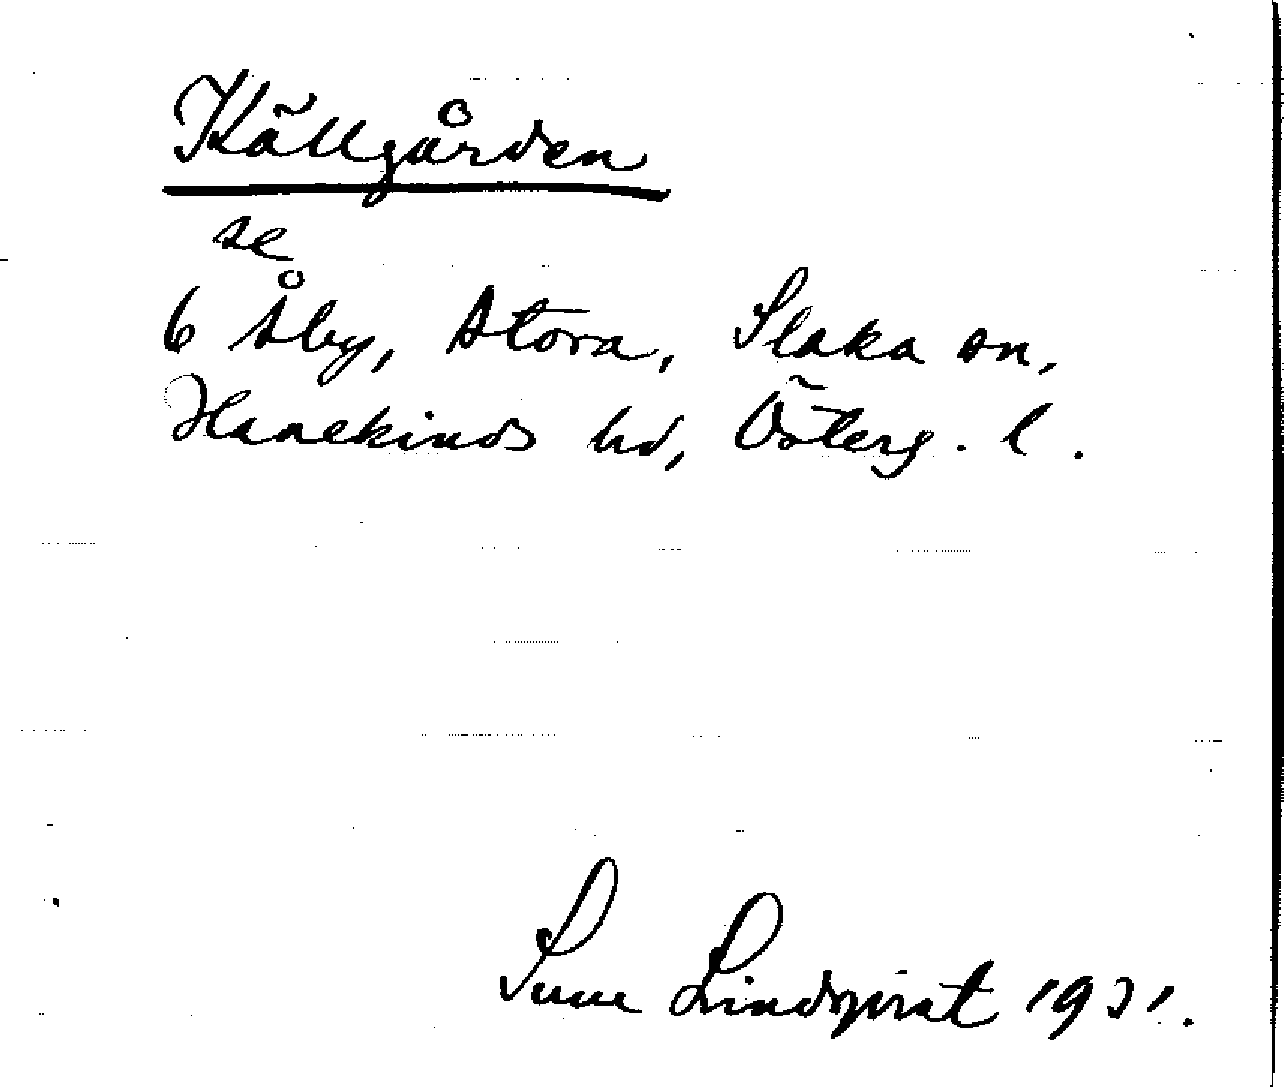 Källgården
se
6 Åby, Stora, Slaka sn,
Hanekinds hd, Österg. l.
Sune Lindqvist 1931.